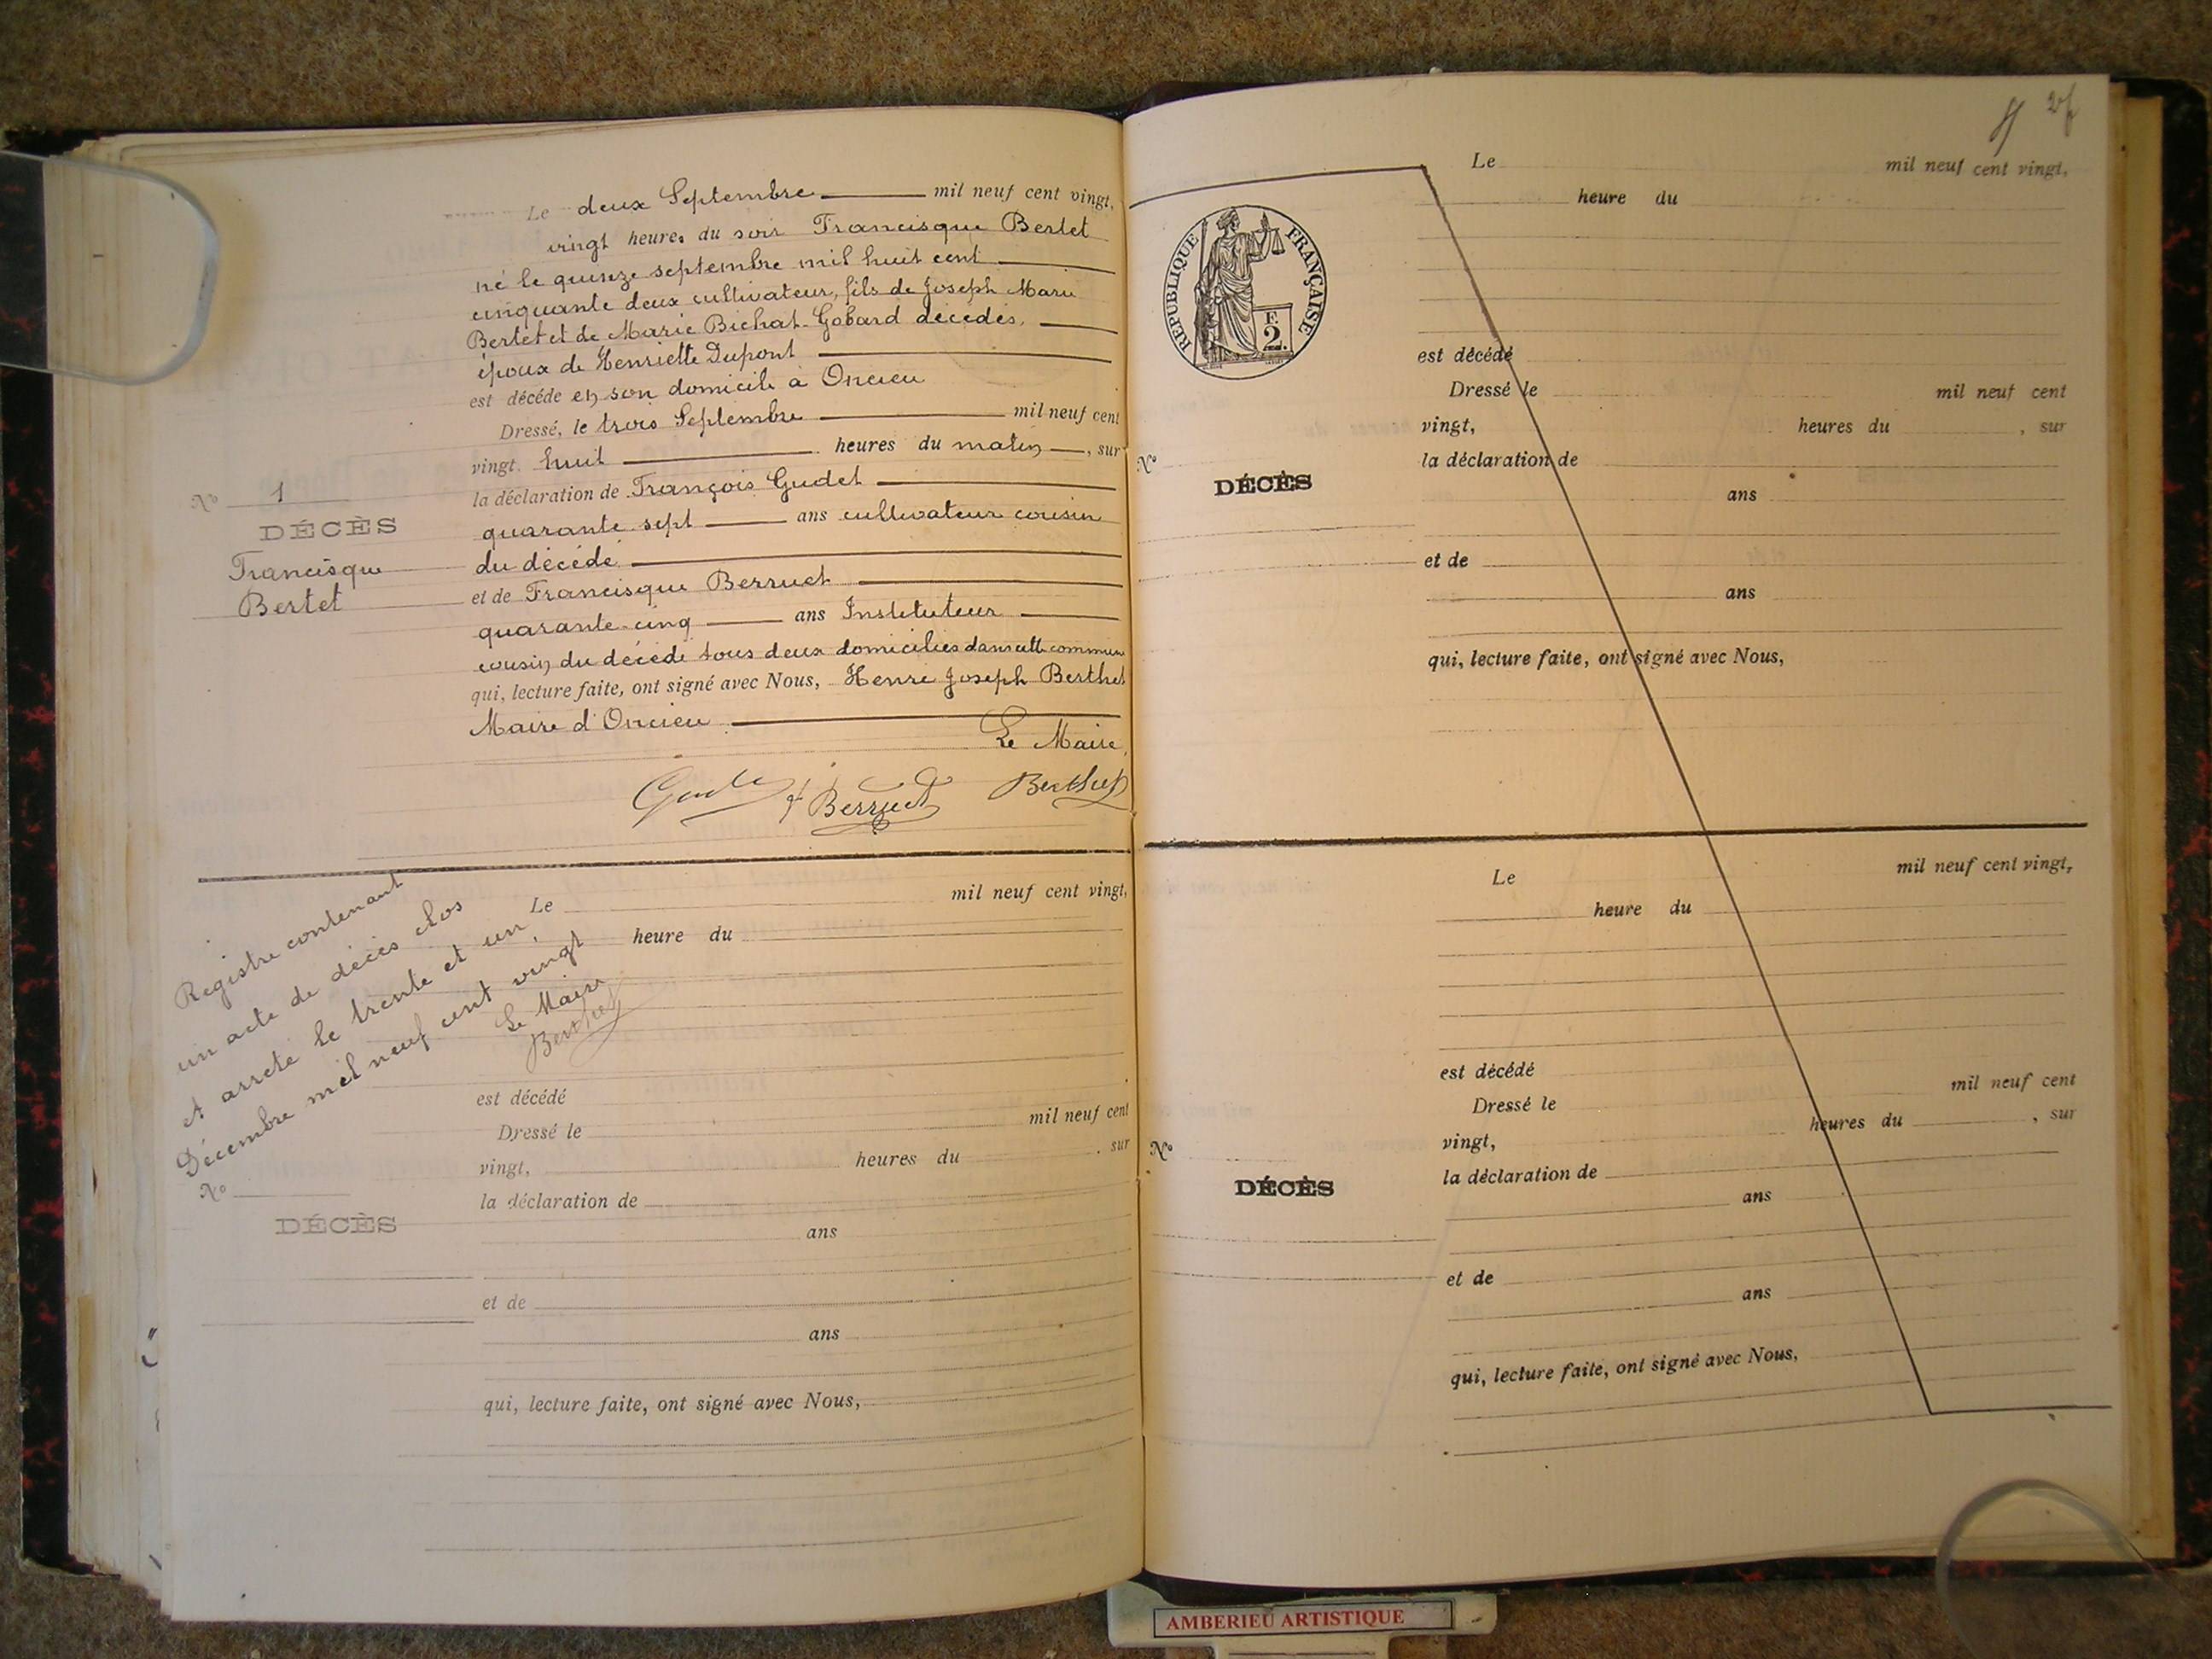 Le deux Septembre mil neuf cent vingt,
vingt heures du soir Francisque Bertet
né le quinze septembre mil huit cent
cinquante deux cultivateur, fils de Joseph Marie
Bertet et de Marie Bichat-Gobard décédés,
époux de Henriette Dupont
est décédé en son domicile à Oncieu
Dressé, le trois Septembre mil neuf cent
vingt, huit heures du matin, sur
la déclaration de François Gudet
quarante sept ans cultivateur cousin
du décédé
et de Francisque Berruet
quarante-cinq ans Instituteur
cousin du décédé tous deux domiciliés dans cette commune
qui, lecture faite, ont signé avec Nous, Henri Joseph Berthet
Maire d'Oncieu
Le Maire,
Berruet Berthet
N° 1
DÉCÈS
Francisque
Bertet
Registre contenant
un acte de décès clos
et arrêté le trente et un,
Décembre mil neuf cent vingt
Le Maire
Berthet
N°
DÉCÈS
Le mil neuf cent vingt,
heure du
est décédé
Dressé le mil neuf cent
vingt, heures du , sur
la déclaration de
ans
et de
ans
qui, lecture faite, ont signé avec Nous,
RÉPUBLIQUE FRANÇAISE
F.
2.
N°
DÉCÈS
Le mil neuf cent vingt,
heure du
est décédé
Dressé le mil neuf cent
vingt, heures du , sur
la déclaration de
ans
et de
ans
qui, lecture faite, ont signé avec Nous,
N°
DÉCÈS
Le mil neuf cent vingt,
heure du
est décédé
Dressé le mil neuf cent
vingt, heures du , sur
la déclaration de
ans
et de
ans
qui, lecture faite, ont signé avec Nous,
AMBERIEU ARTISTIQUE